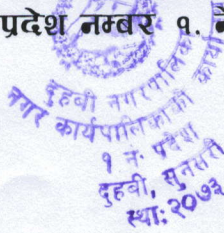 प्रदेश नम्बर १,
दुहबी नगरपालिका
नगर कार्यपालिकाको कार्या
१ नं. प्रदेश
दुहवी, सुनसरी
स्था: २०७३